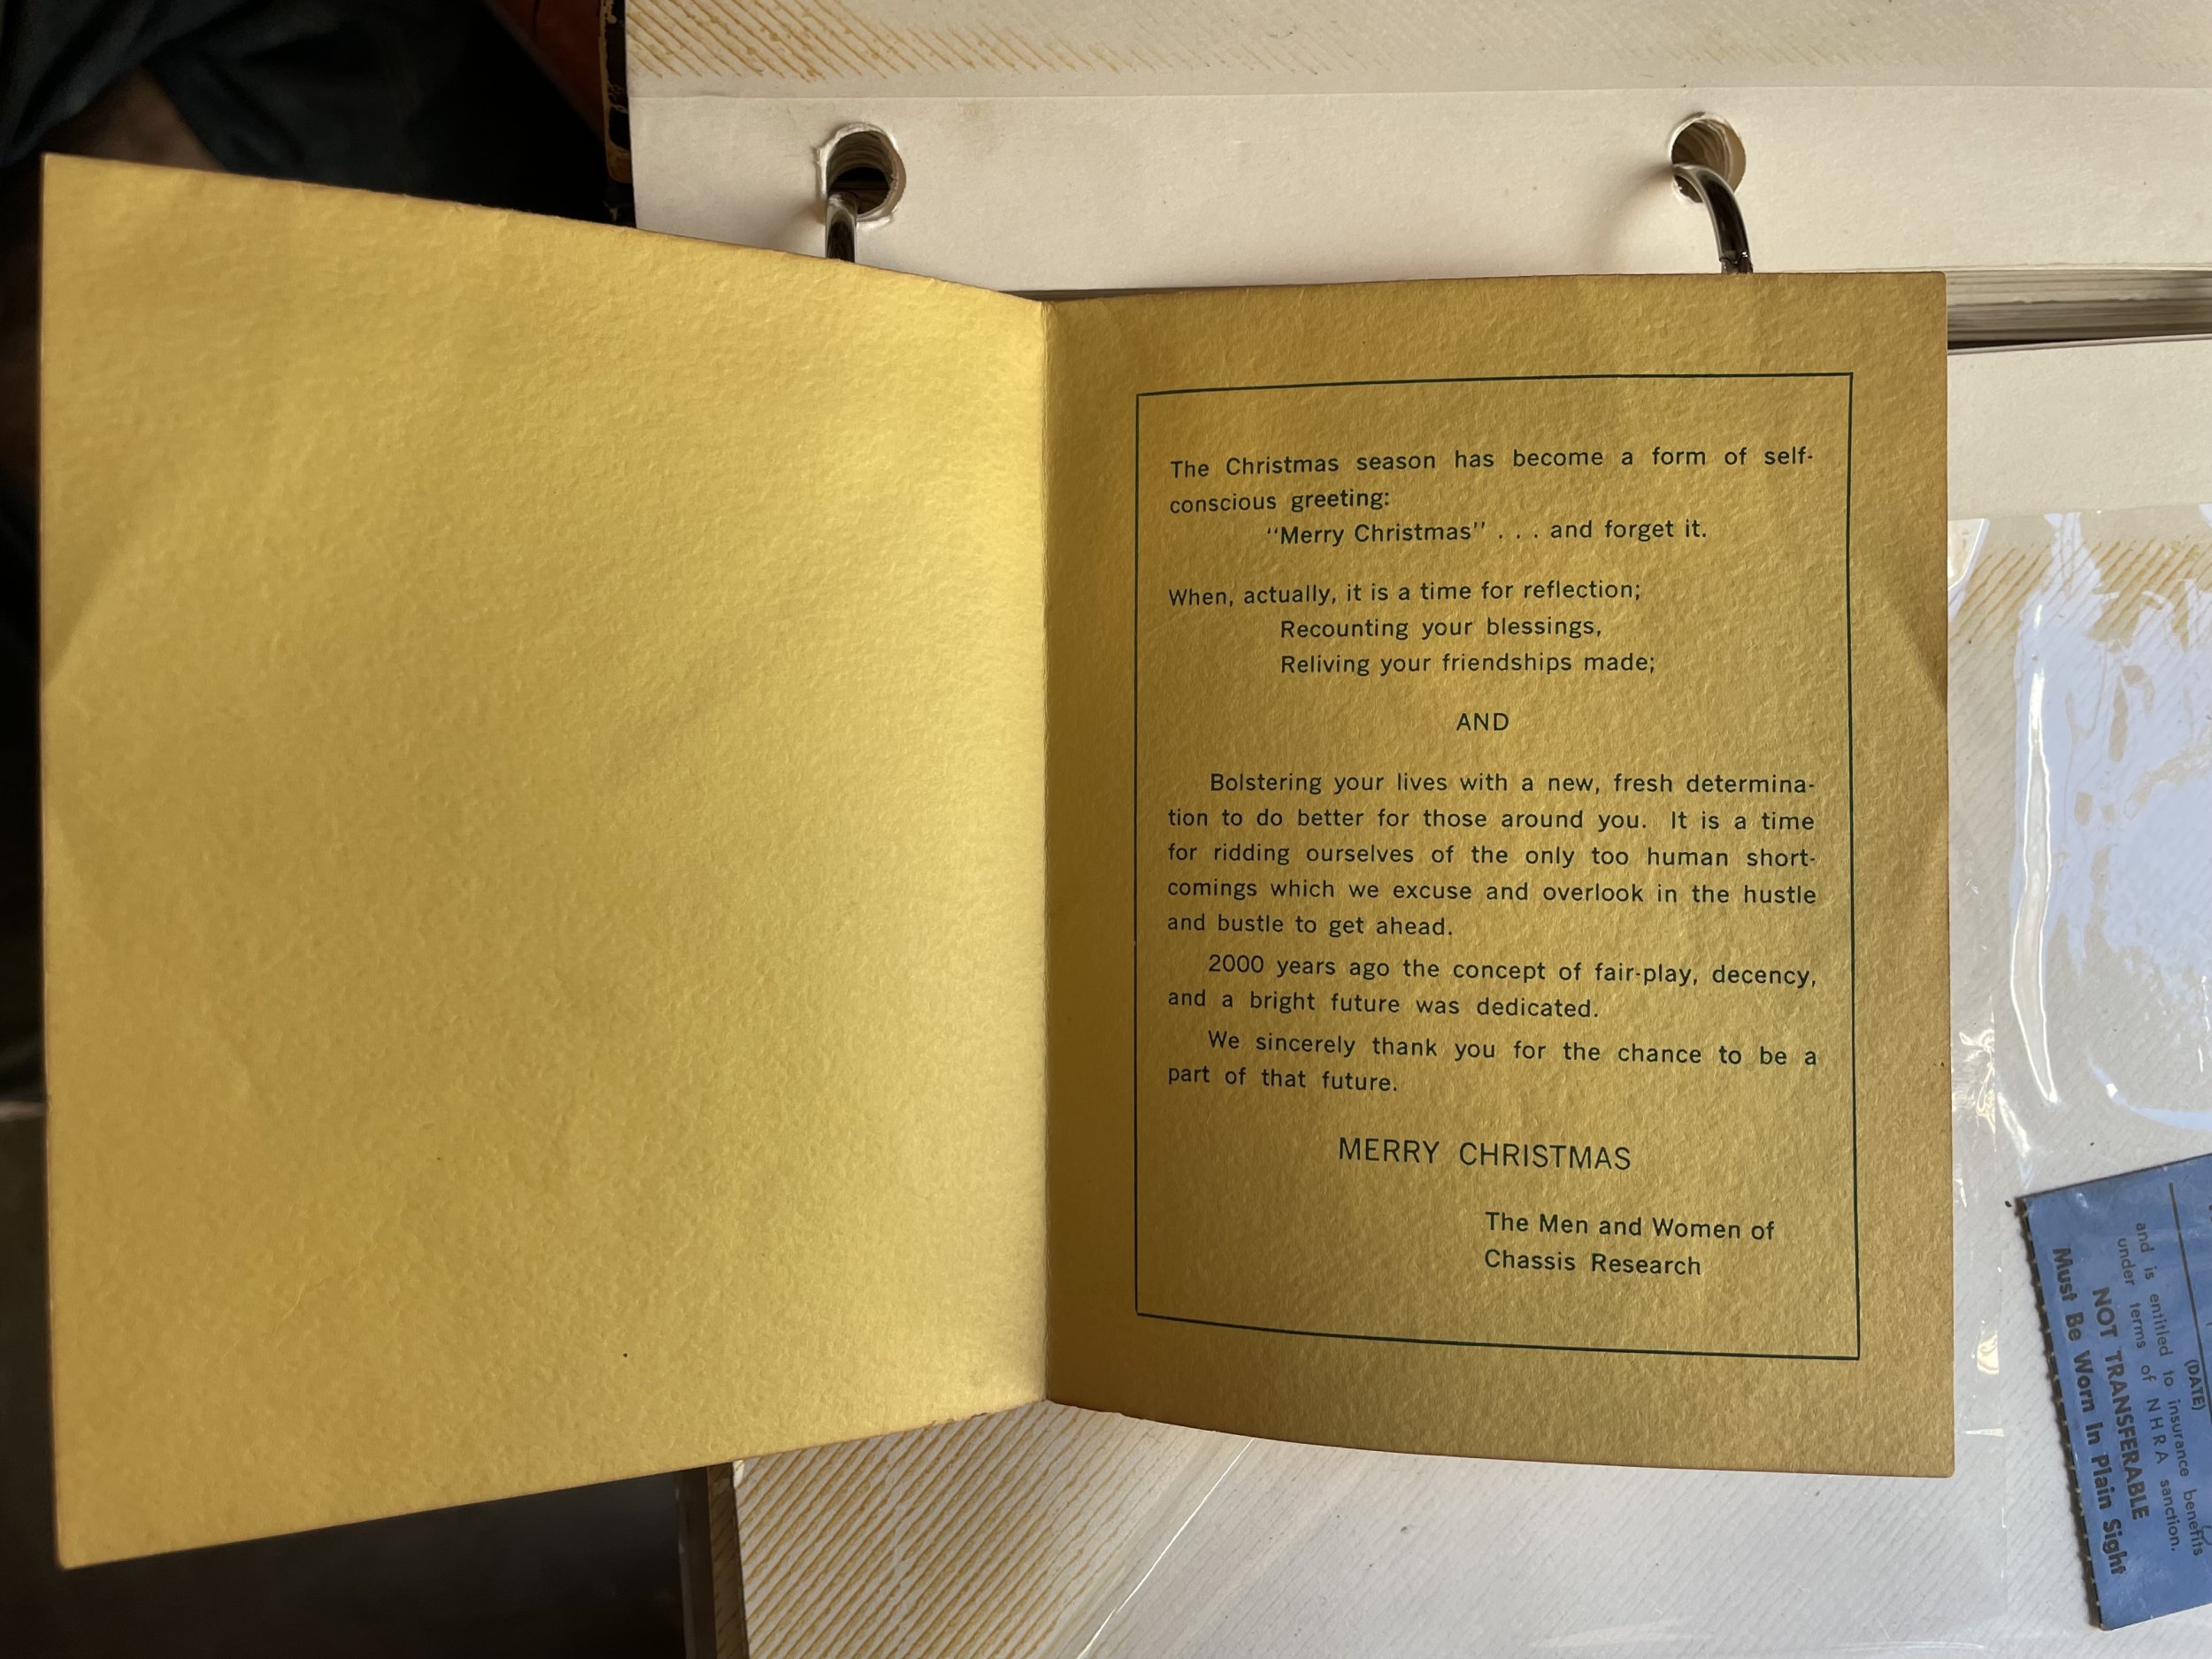 The Christmas season has become a form of self-
conscious greeting:
"Merry Christmas" . . . and forget it.
When, actually, it is a time for reflection;
Recounting your blessings,
Reliving your friendships made;
AND
Bolstering your lives with a new, fresh determina-
tion to do better for those around you. It is a time
for ridding ourselves of the only too human short-
comings which we excuse and overlook in the hustle
and bustle to get ahead.
2000 years ago the concept of fair-play, decency,
and a bright future was dedicated.
We sincerely thank you for the chance to be a
part of that future.
MERRY CHRISTMAS
The Men and Women of
Chassis Research
(DATE)
and is entitled to insurance benefits
under terms of NHRA sanction.
NOT TRANSFERABLE
Must Be Worn In Plain Sight